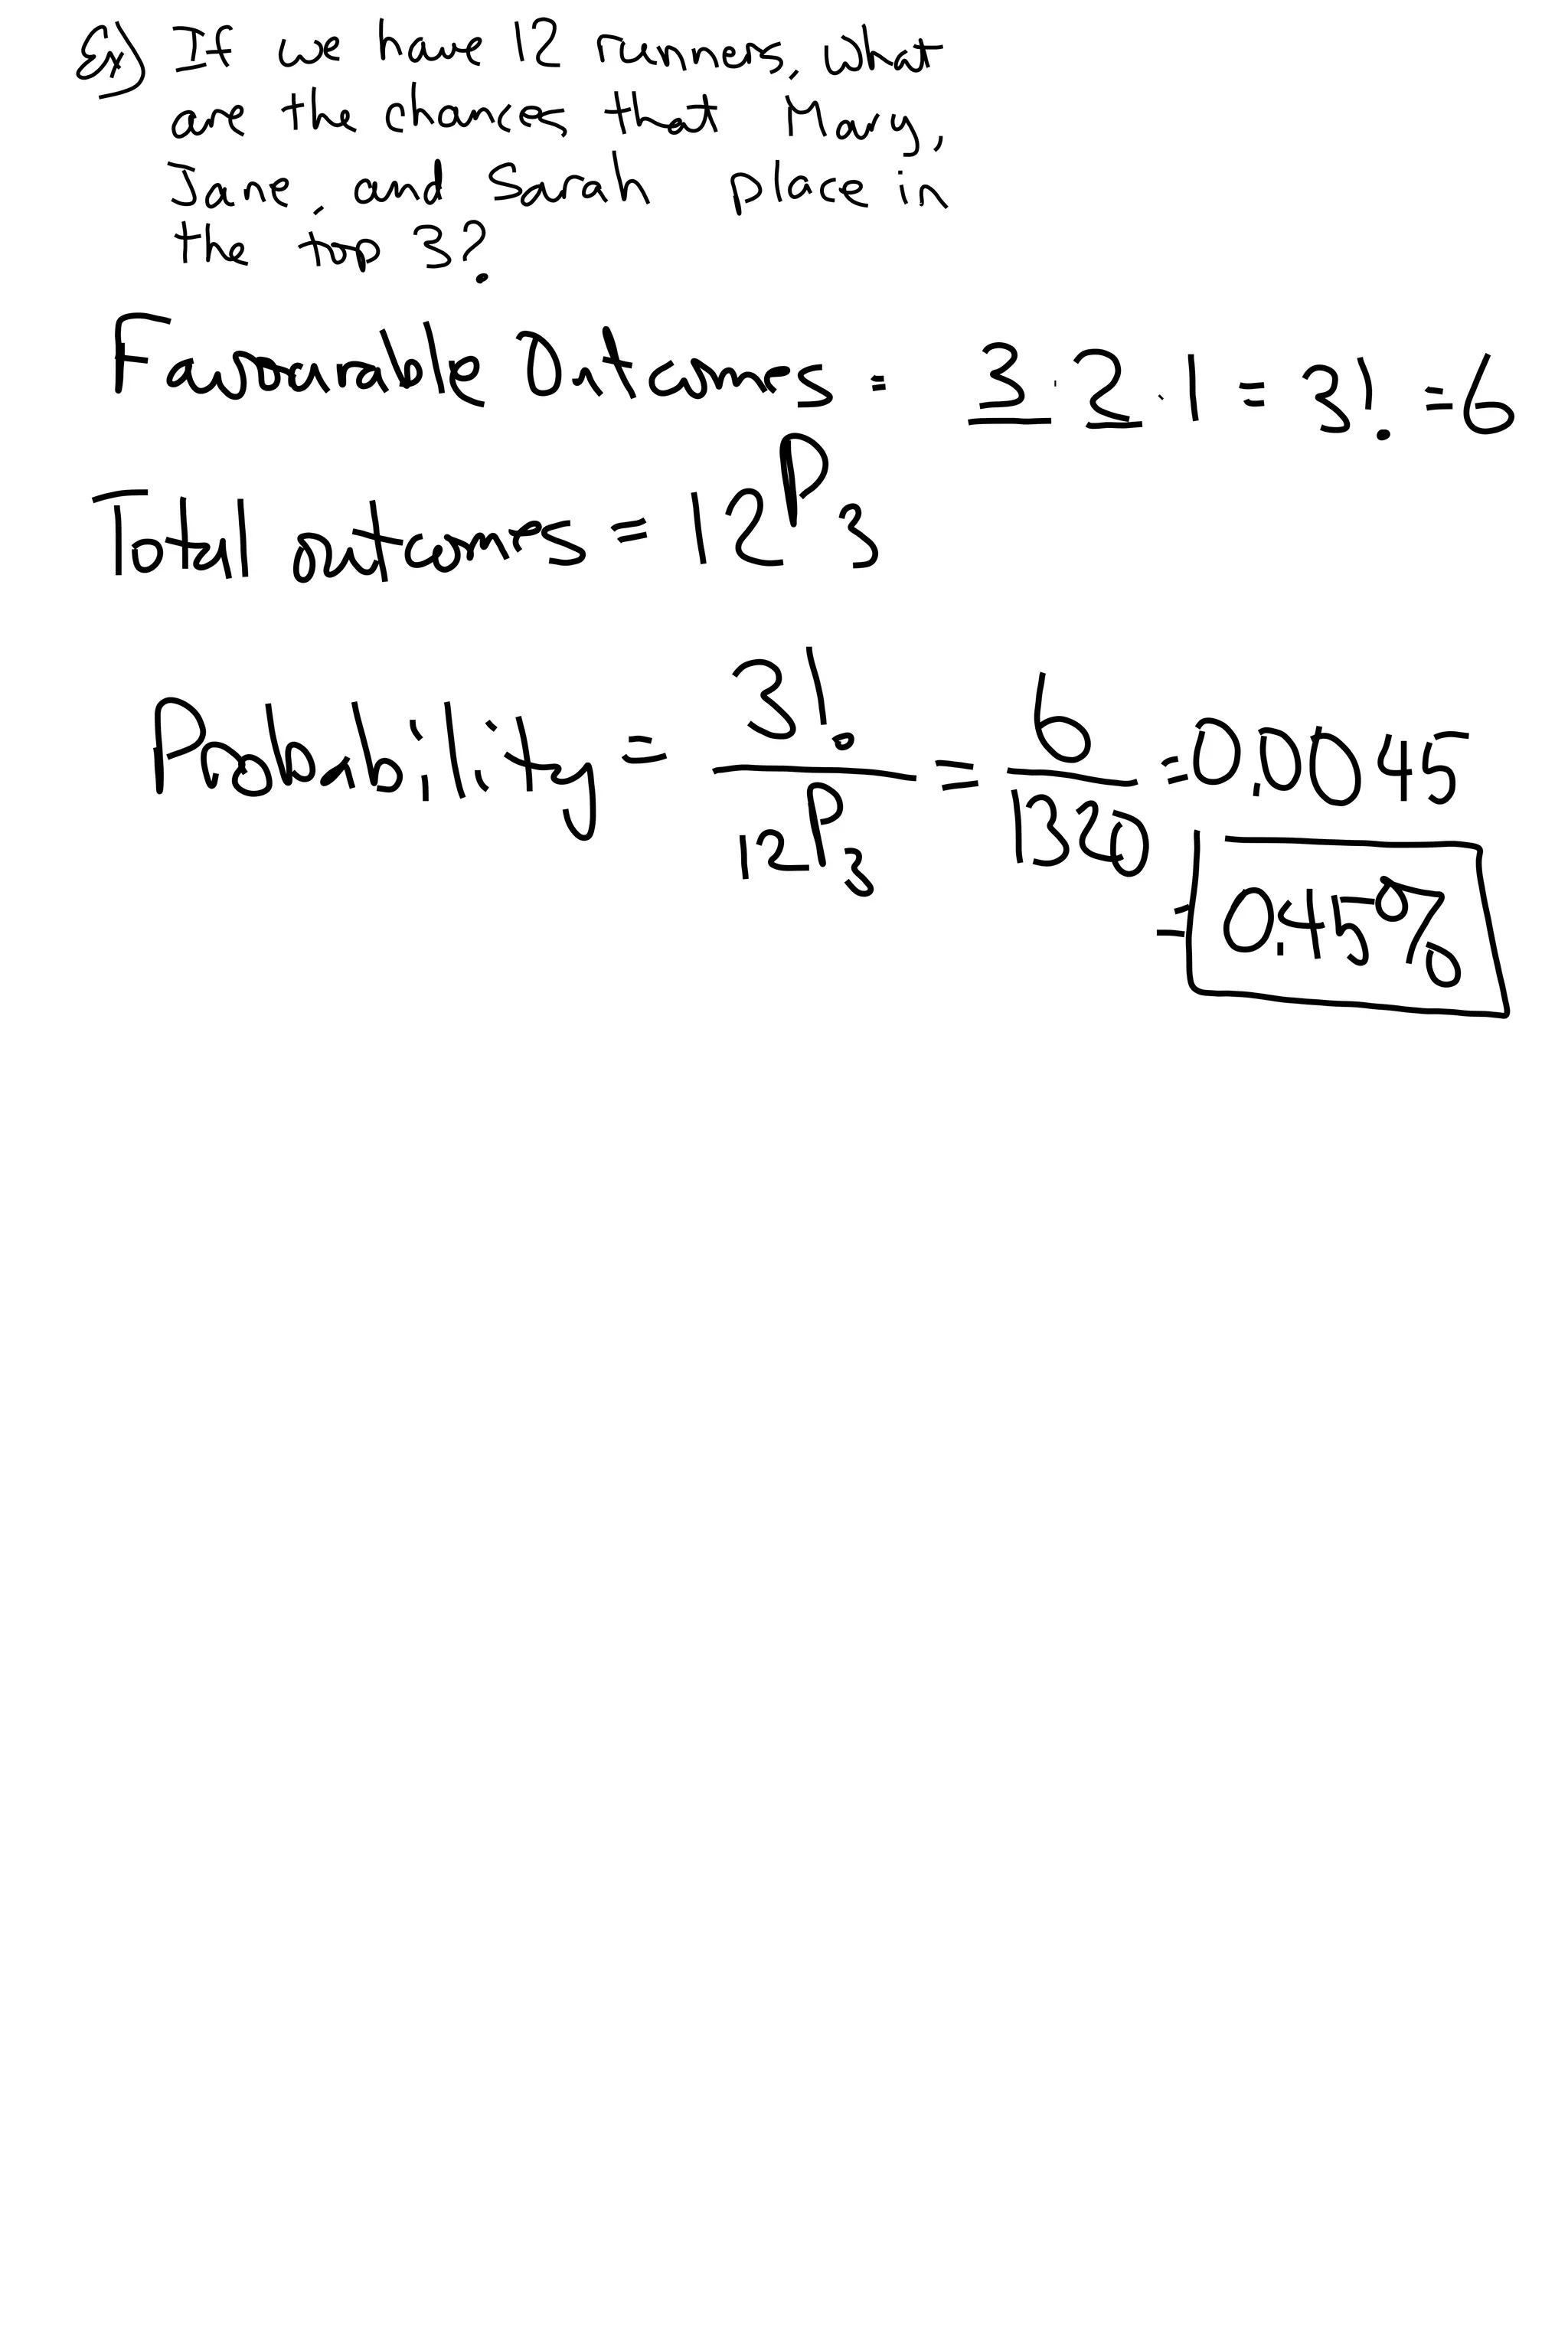 Ex) If we have 12 runners, what
are the chances that Mary,
Jane, and Sarah place in
the top 3?
Favorable Outcomes = 3 · 2 · 1 = 3! = 6
Total outcomes = 12P3
Probability = 3! / 12P3 = 6 / 1320 = 0.0045
= 0.45%